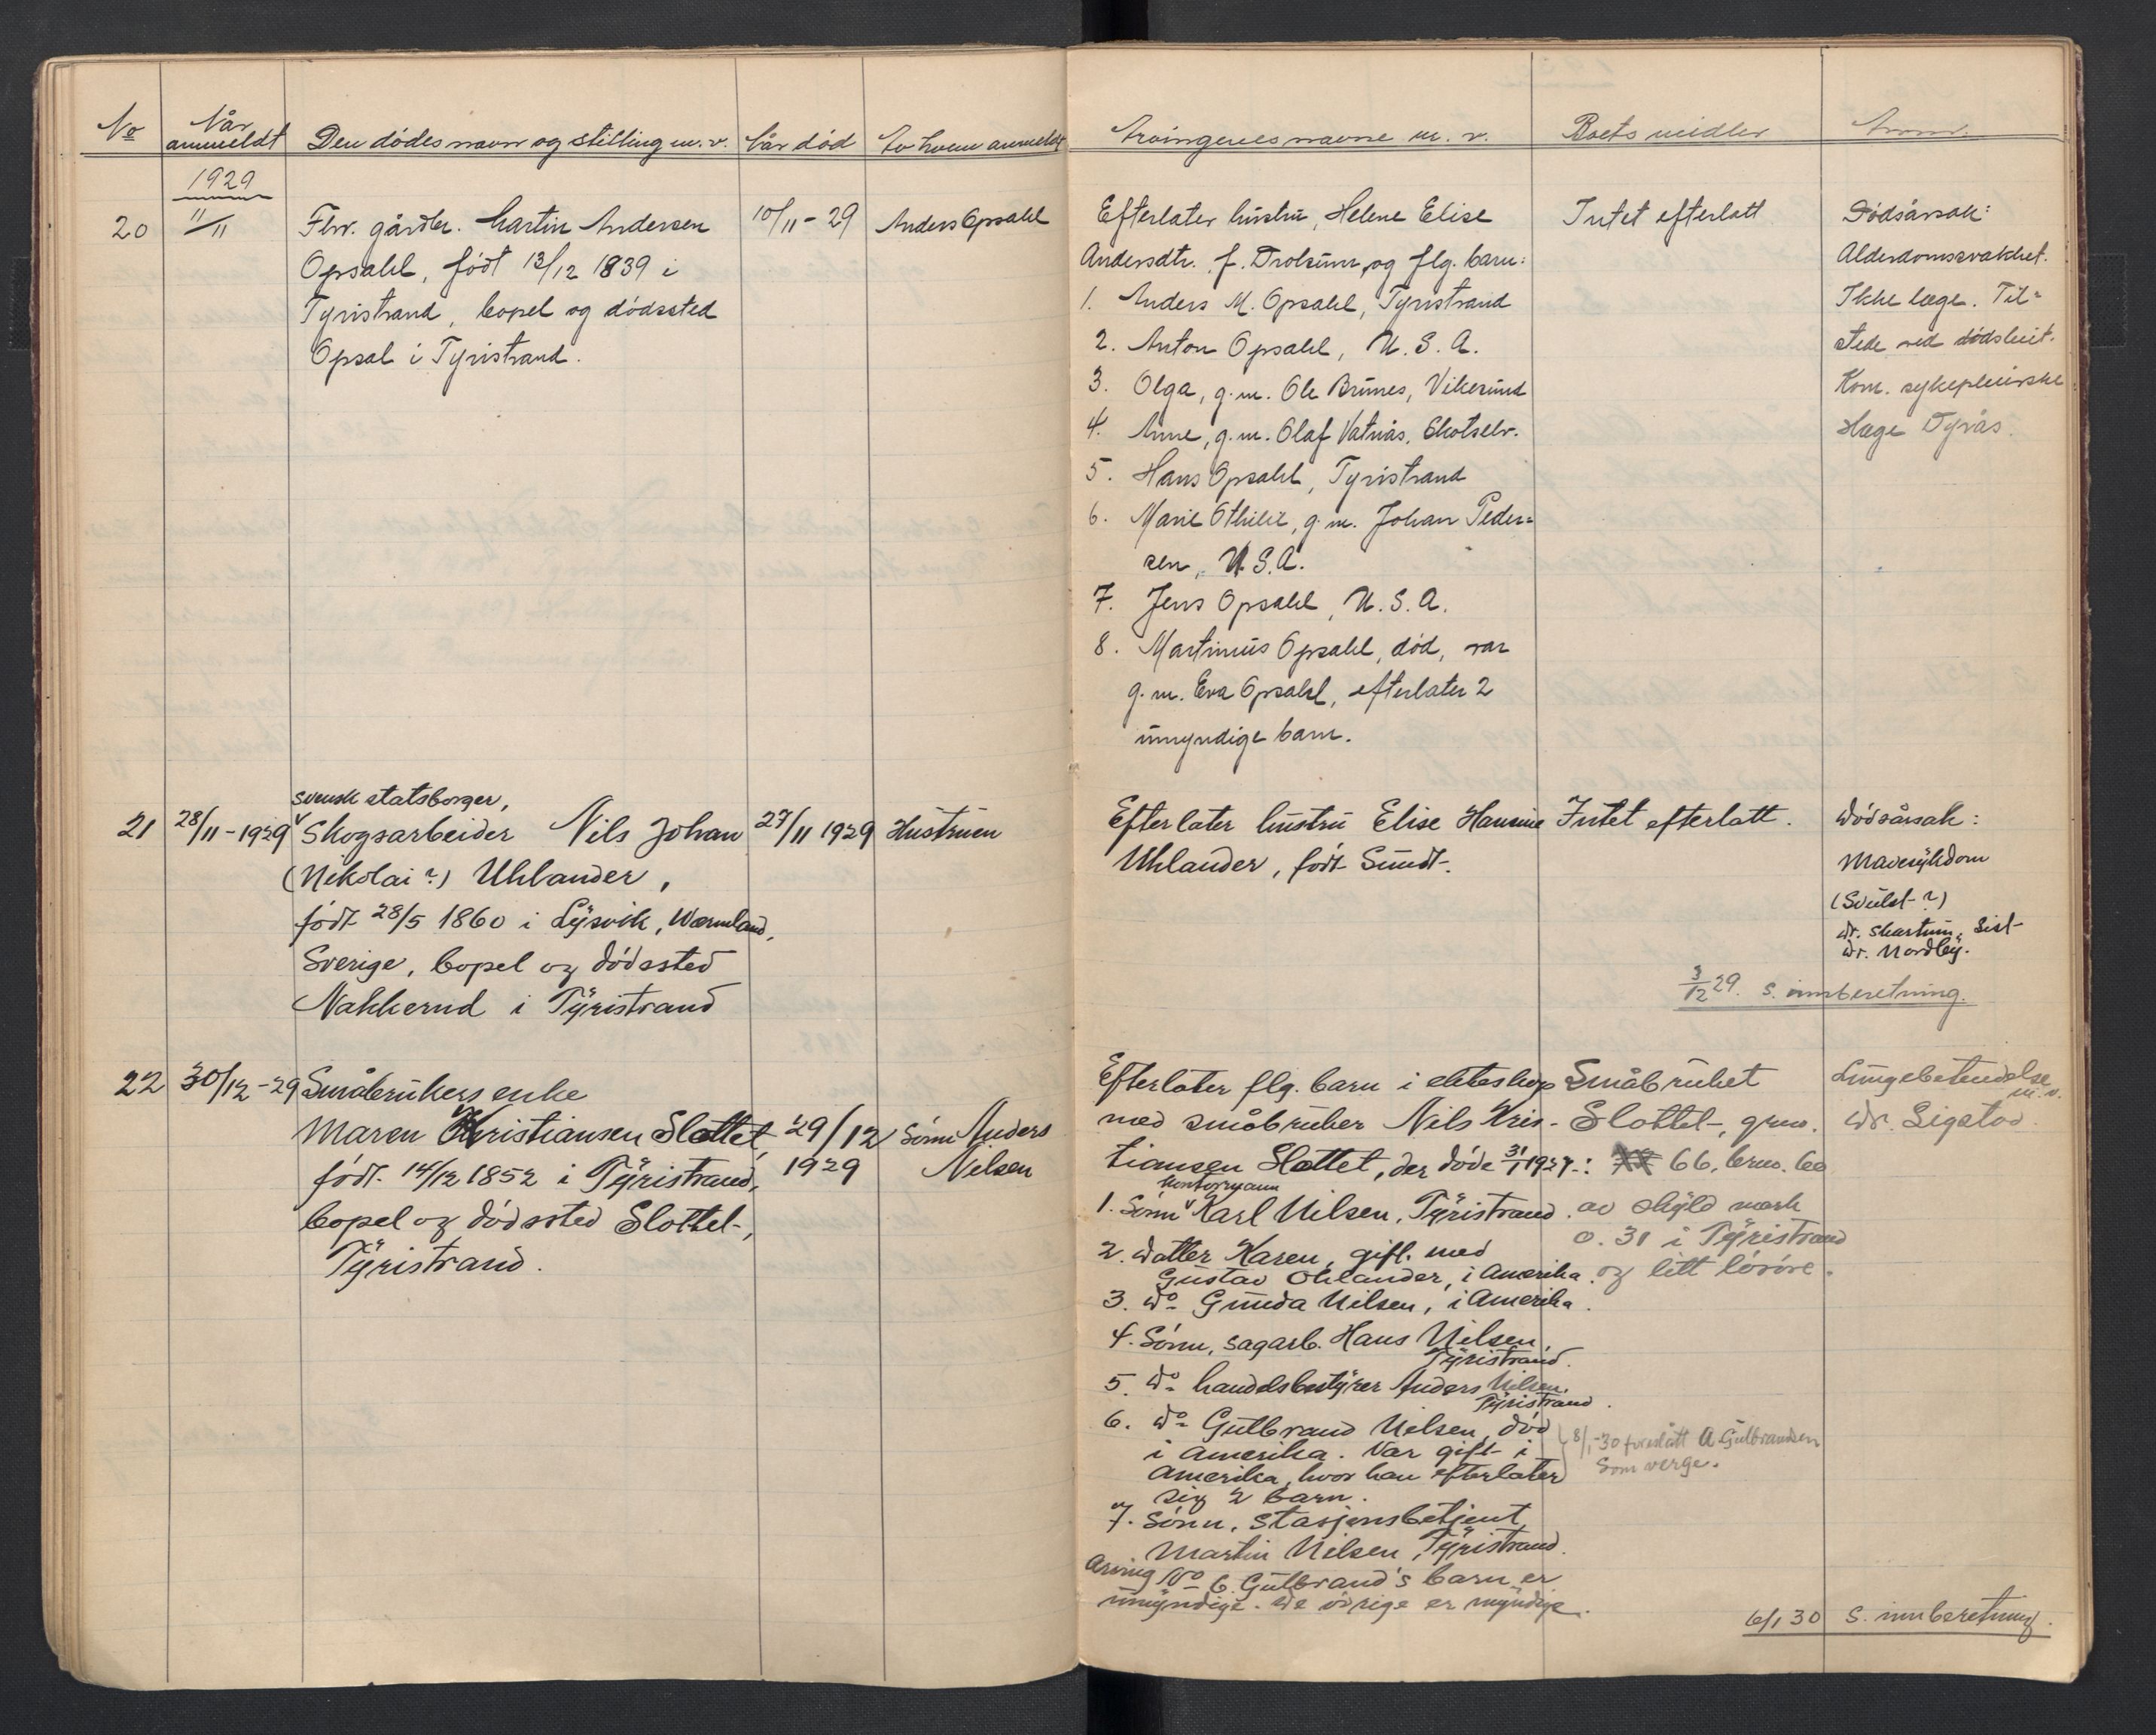 No
Når anmeldt
Den dødes navn og stilling m. v.
Når død
Av hvem anmeldt
Arvingenes navne m. v.
Boets midler
Anm.
1929
20
11/11
Fhv. gårdbr. Martin Andersen
Opsahl, født 13/12 1839 i
Tyristrand, bopel og dødssted
Opsal i Tyristrand.
10/11 - 29
Anders Opsahl
Efterlater hustru, Helene Elise
Andersdtr. f. Drolsum, og flg. barn:
1. Anders M. Opsahl, Tyristrand
2. Anton Opsahl, U. S. A.
3. Olga, g. m. Ole Brunes, Vikersund
4. Anne, g. m. Olaf Vatnås, Skotselv.
5. Hans Opsahl, Tyristrand
6. Marie Othilie, g. m. Johan Peder=
sen, U. S. A.
7. Jens Opsahl, U. S. A.
8. Martinius Opsahl, død, var
g. m. Eva Opsahl, efterlater 2
umyndige barn.
Intet efterlatt
Dødsårsak:
Alderdomssvakhet.
Ikke læge. Til=
stede ved dødsleiet.
Kom. sykepleierske
Hage Tyrås.
21
28/11 - 1929
svensk statsborger,
Skogsarbeider Nils Johan
(Nikolai?) Uhlander,
født 28/5 1860 i Lysvik, Wærmland,
Sverige, bopel og dødssted
Nakkerud i Tyristrand
27/11 1929
Hustruen
Efterlater hustru Elise Hansine
Uhlander, født Sundt.
Intet efterlatt.
Dødsårsak:
Mavesykdom
(Svulst?)
dr. Skartum, sist
dr. Nordby.
3/12 29. s. innberetning.
22
30/12 - 29
Småbrukers enke
Maren Kristiansen Slottet,
født 14/12 1852 i Tyristrand,
bopel og dødssted Slottet,
Tyristrand.
29/12
1929
Sønn Anders
Nilsen
Efterlater flg. barn i ekteskap
med småbruker Nils Kris-
tiansen Slottet, der døde 31/1 1927:
kontormann
1. Sønn Karl Nilsen, Tyristrand.
2. Datter Karen, gift. med
Gustav Ohlander, i Amerika.
3. do Gunda Nilsen, i Amerika.
4. Sønn, sagarb. Hans Nilsen,
Tyristrand.
5. do handelsbestyrer Anders Nilsen,
Tyristrand.
6. do Gulbrand Nilsen, død
i Amerika. Var gift i
Amerika, hvor han efterlater
sig 2 barn.
7. Sønn, stasjonsbetjent
Martin Nilsen, Tyristrand.
Arving No 6. Gulbrand's barn er
umyndige. De øvrige er myndige.
Småbruket
Slottet, grnr.
66, brnr. 60
av skyld mark
0.31 i Tyristrand
og litt løsøre.
8/1-30 foreslått A Gulbrandsen
som verge.
Lungebetendelse
m. v.
Dr. Sigstad.
6/1 30 s. innberetning.